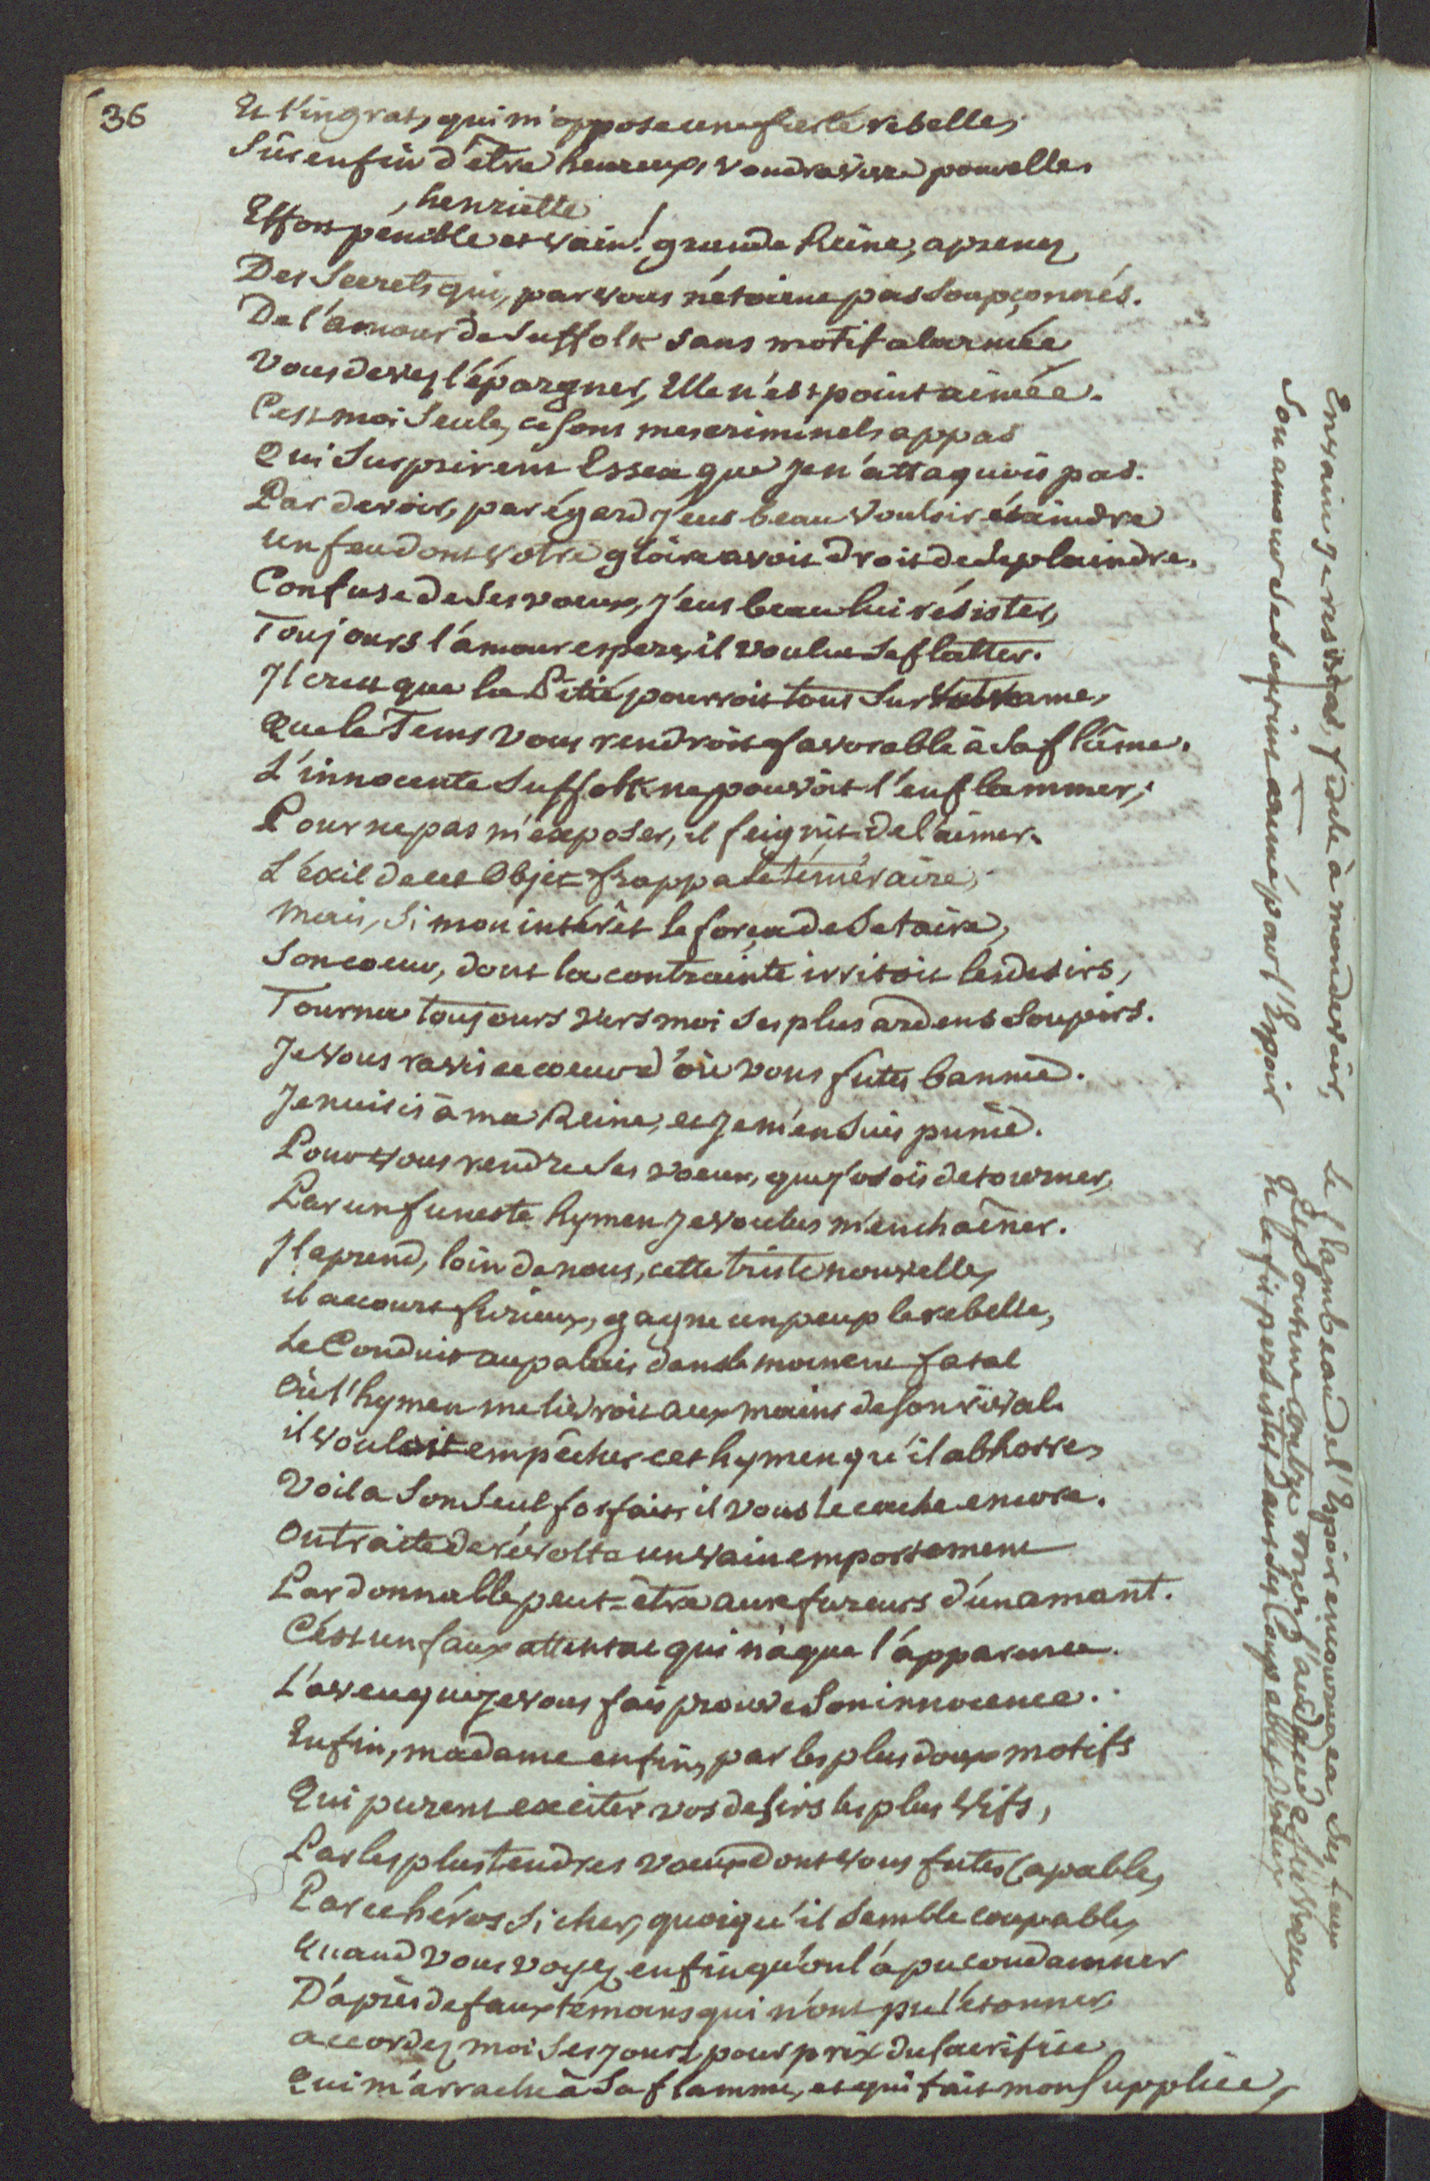 36
Et l'ingrat, qui m'oppose une fierté rebelle,
Sûr enfin d'être heureux, voudra vivre pour elle.
henriette
Effort pénible et vain! grande Reine, aprenez
Des Secrets qui, par vous n'étoient pas soupçonnés.
De l'amour de Suffolk sans motif alarmée
Vous devez l'épargner, Elle n'est point aimée.
C'est moi Seule, ce sont mes criminels appas
Qui Surprirent Essex que je n'attaquois pas.
Par devoir, par égard j'eus beau vouloir éteindre
un feu dont votre gloire avoit droit de se plaindre.
Confuse de ses voeux, j'eus beau lui résister,
Toujours l'amour espere, il voulut se flatter.
Il crut que la Pitié pourroit tout sur votre ame,
Que le Tems vous rendroit favorable à sa flâme.
L'innocente Suffolk ne pouvoit l'enflammer;
Pour ne pas m'exposer, il feignit de l'aimer.
L'éxil de cet Objet frappa le téméraire;
Mais, si mon intérêt le força de se taire,
Son coeur, dont la contrainte irritoit les desirs,
Tourna toujours vers moi ses plus ardens Soupirs.
Je vous ravis ce coeur d'où vous futes bannie.
Je nuisis à ma Reine, et je m'en suis punie.
Pour vous rendre ses voeux, que j'osois detourner,
Par un funeste hymen je voulus m'enchaîner.
Il aprend, loin de nous, cette triste nouvelle,
il accourt furieux, gagne un peuple rebelle,
Le Conduit au palais dans le moment fatal
Où l'hymen me livroit aux mains de son rival.
il vouloit empêcher cet hymen qu'il abhorre,
Voila Son Seul forfait; il vous le cache encore.
On traite de révolte un vain emportement
Pardonnable peut-être aux fureurs d'un amant.
C'est un faux attentat qui n'a que l'apparence.
L'aveu que je vous fais prouve Son innocence.
Enfin, madame enfin, par les plus doux motifs
Qui purent exciter vos desirs les plus vifs,
Par les plus tendres voeux dont vous futes Capable,
Par ce héros si cher, quoiqu'il semble coupable,
Quand vous voyez enfin qu'on l'a pu condamner
D'après de faux témoins qui n'ont pu l'étonner,
accordez moi ses jours pour prix du sacrifice
Qui m'arrache à sa flamme, et qui fait mon Supplice,
En vain je résistai, fidele à mon devoir,
Son amour se soutint animé par l'Espoir
Le flambeau de l'Espoir encouragea ses feux
ne le fit persister dans ses Coupables voeux